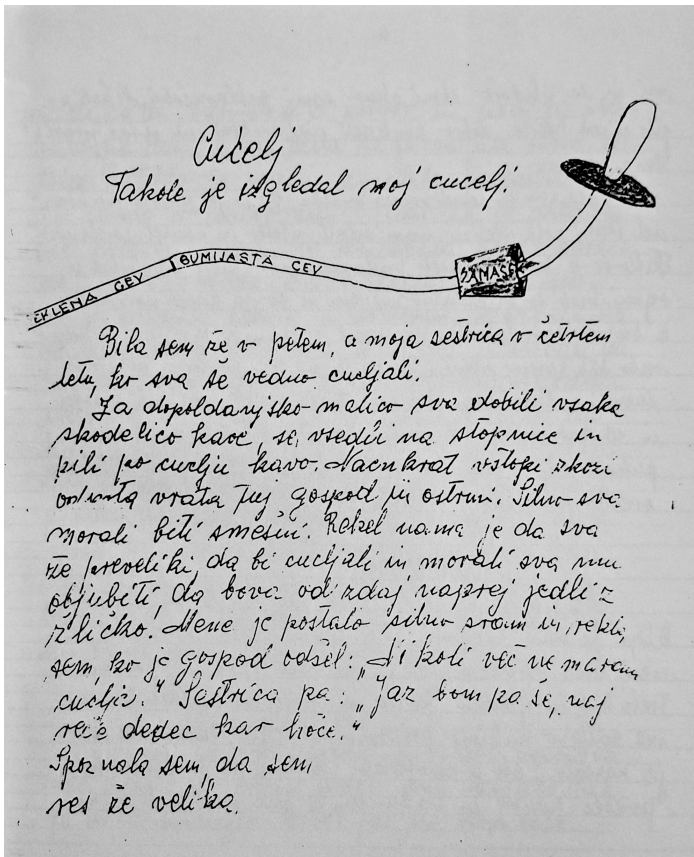 Cucelj
Takole je izgledal moj cucelj.
ZAMAŠEK
GUMIJASTA CEV
KLENA CEV
Bila sem že v petem, a moja sestrica v četrtem
letu, ko sva še vedno cucljali.
Za dopoldanjsko malico sva dobili vsaka
skodelico kave, se vsedli na stopnice in
pili po cuclju kavo. Naenkrat vstopi skozi
odprta vrata tuj gospod in ostrmi. Silno sva
morali biti smešni. Rekel nama je da sva
že preveliki, da bi cucljali in morali sva mu
objubiti, da bova od zdaj naprej jedli z
žličko. Mene je postalo silno sram in rekla
sem, ko je gospod odšel: „Nikoli več ne maram
cuclja." Sestrica pa: „Jaz bom pa še, naj
reče dedec kar hoče."
Spoznala sem, da sem
res že velika.